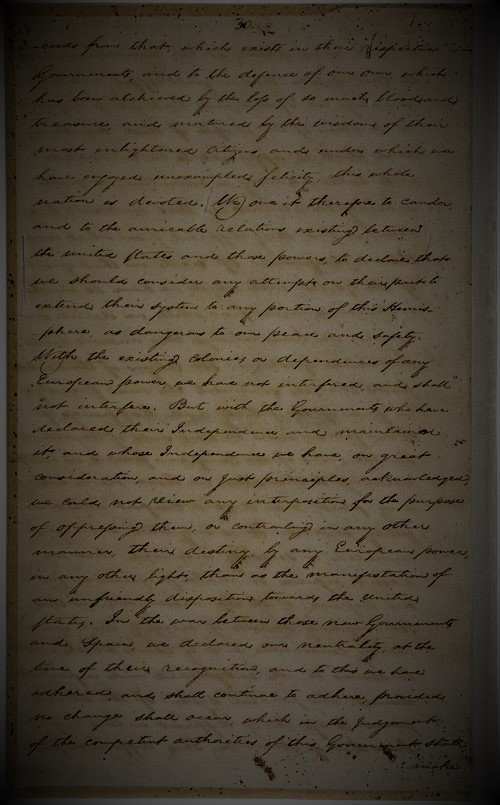 30.
-ceeds from that, which exists in their respective
Governments, and to the defence of our own, which
has been atchieved by the loss of so much blood and
treasure, and matured by the wisdom of their
most enlightened Citizens, and under which we
have enjoyed unexampled felicity, this whole
nation is devoted. We owe it therefore to candor
and to the amicable relations existing between
the united States and those powers, to declare that
we should consider any attempt on their part to
extend their system to any portion of this Hemis-
phere, as dangerous to our peace and safety.
With the existing Colonies or dependencies of any
European power, we have not interfered, and shall
not interfere. But with the Governments who have
declared their Independence, and maintained
it, and whose Independence we have, on great
consideration, and on just principles, acknowledged,
we could not view any interposition for the purpose
of oppressing them, or controuling in any other
manner, their destiny, by any European power,
in any other light, than as the manifestation of
an unfriendly disposition towards the United
States. In the war between those new Governments
and Spain, we declared our neutrality, at the
time of their recognition, and to this we have
adhered, and shall continue to adhere, provided
no change shall occur, which in the Judgement
of the competent authorities of this Government shall
make